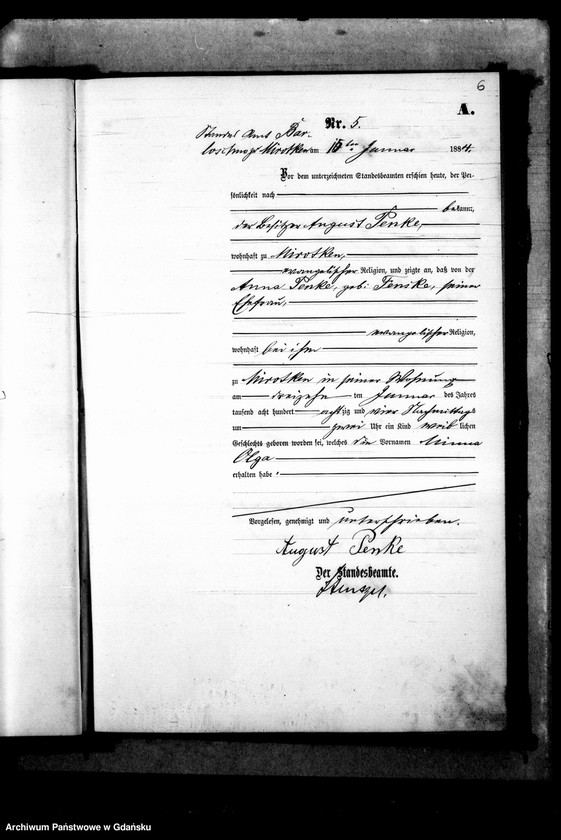 6
A.
Nr. 5.
Standes Amt Bar-
loschno zu Mirotken am 15ten Januar 1884.
Vor dem unterzeichneten Standesbeamten erschien heute, der Per-
sönlichkeit nach
bekannt,
der Besitzer August Penke,
wohnhaft zu Mirotken,
evangelischer Religion, und zeigte an, daß von der
Anna Penke, geb: Fenske, seiner
Ehefrau,
evangelischer Religion,
wohnhaft bei ihm
zu Mirotken in seiner Wohnung
am dreizehn ten Januar des Jahres
tausend acht hundert achtzig und vier Nachmittags
um zwei Uhr ein Kind weib lichen
Geschlechts geboren worden sei, welches die Vornamen Minna
Olga
erhalten habe.
Vorgelesen, genehmigt und unterschrieben.
August Penke
Der Standesbeamte.
Archiwum Państwowe w Gdańsku